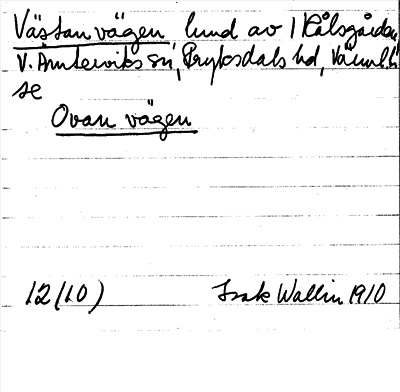 Västan vägen, lund av 1 Kålsgården,
V. Ämterviks sn, Fryksdals hd, Värml. l.
se
Ovan vägen
12 (10) Isak Wallin 1910